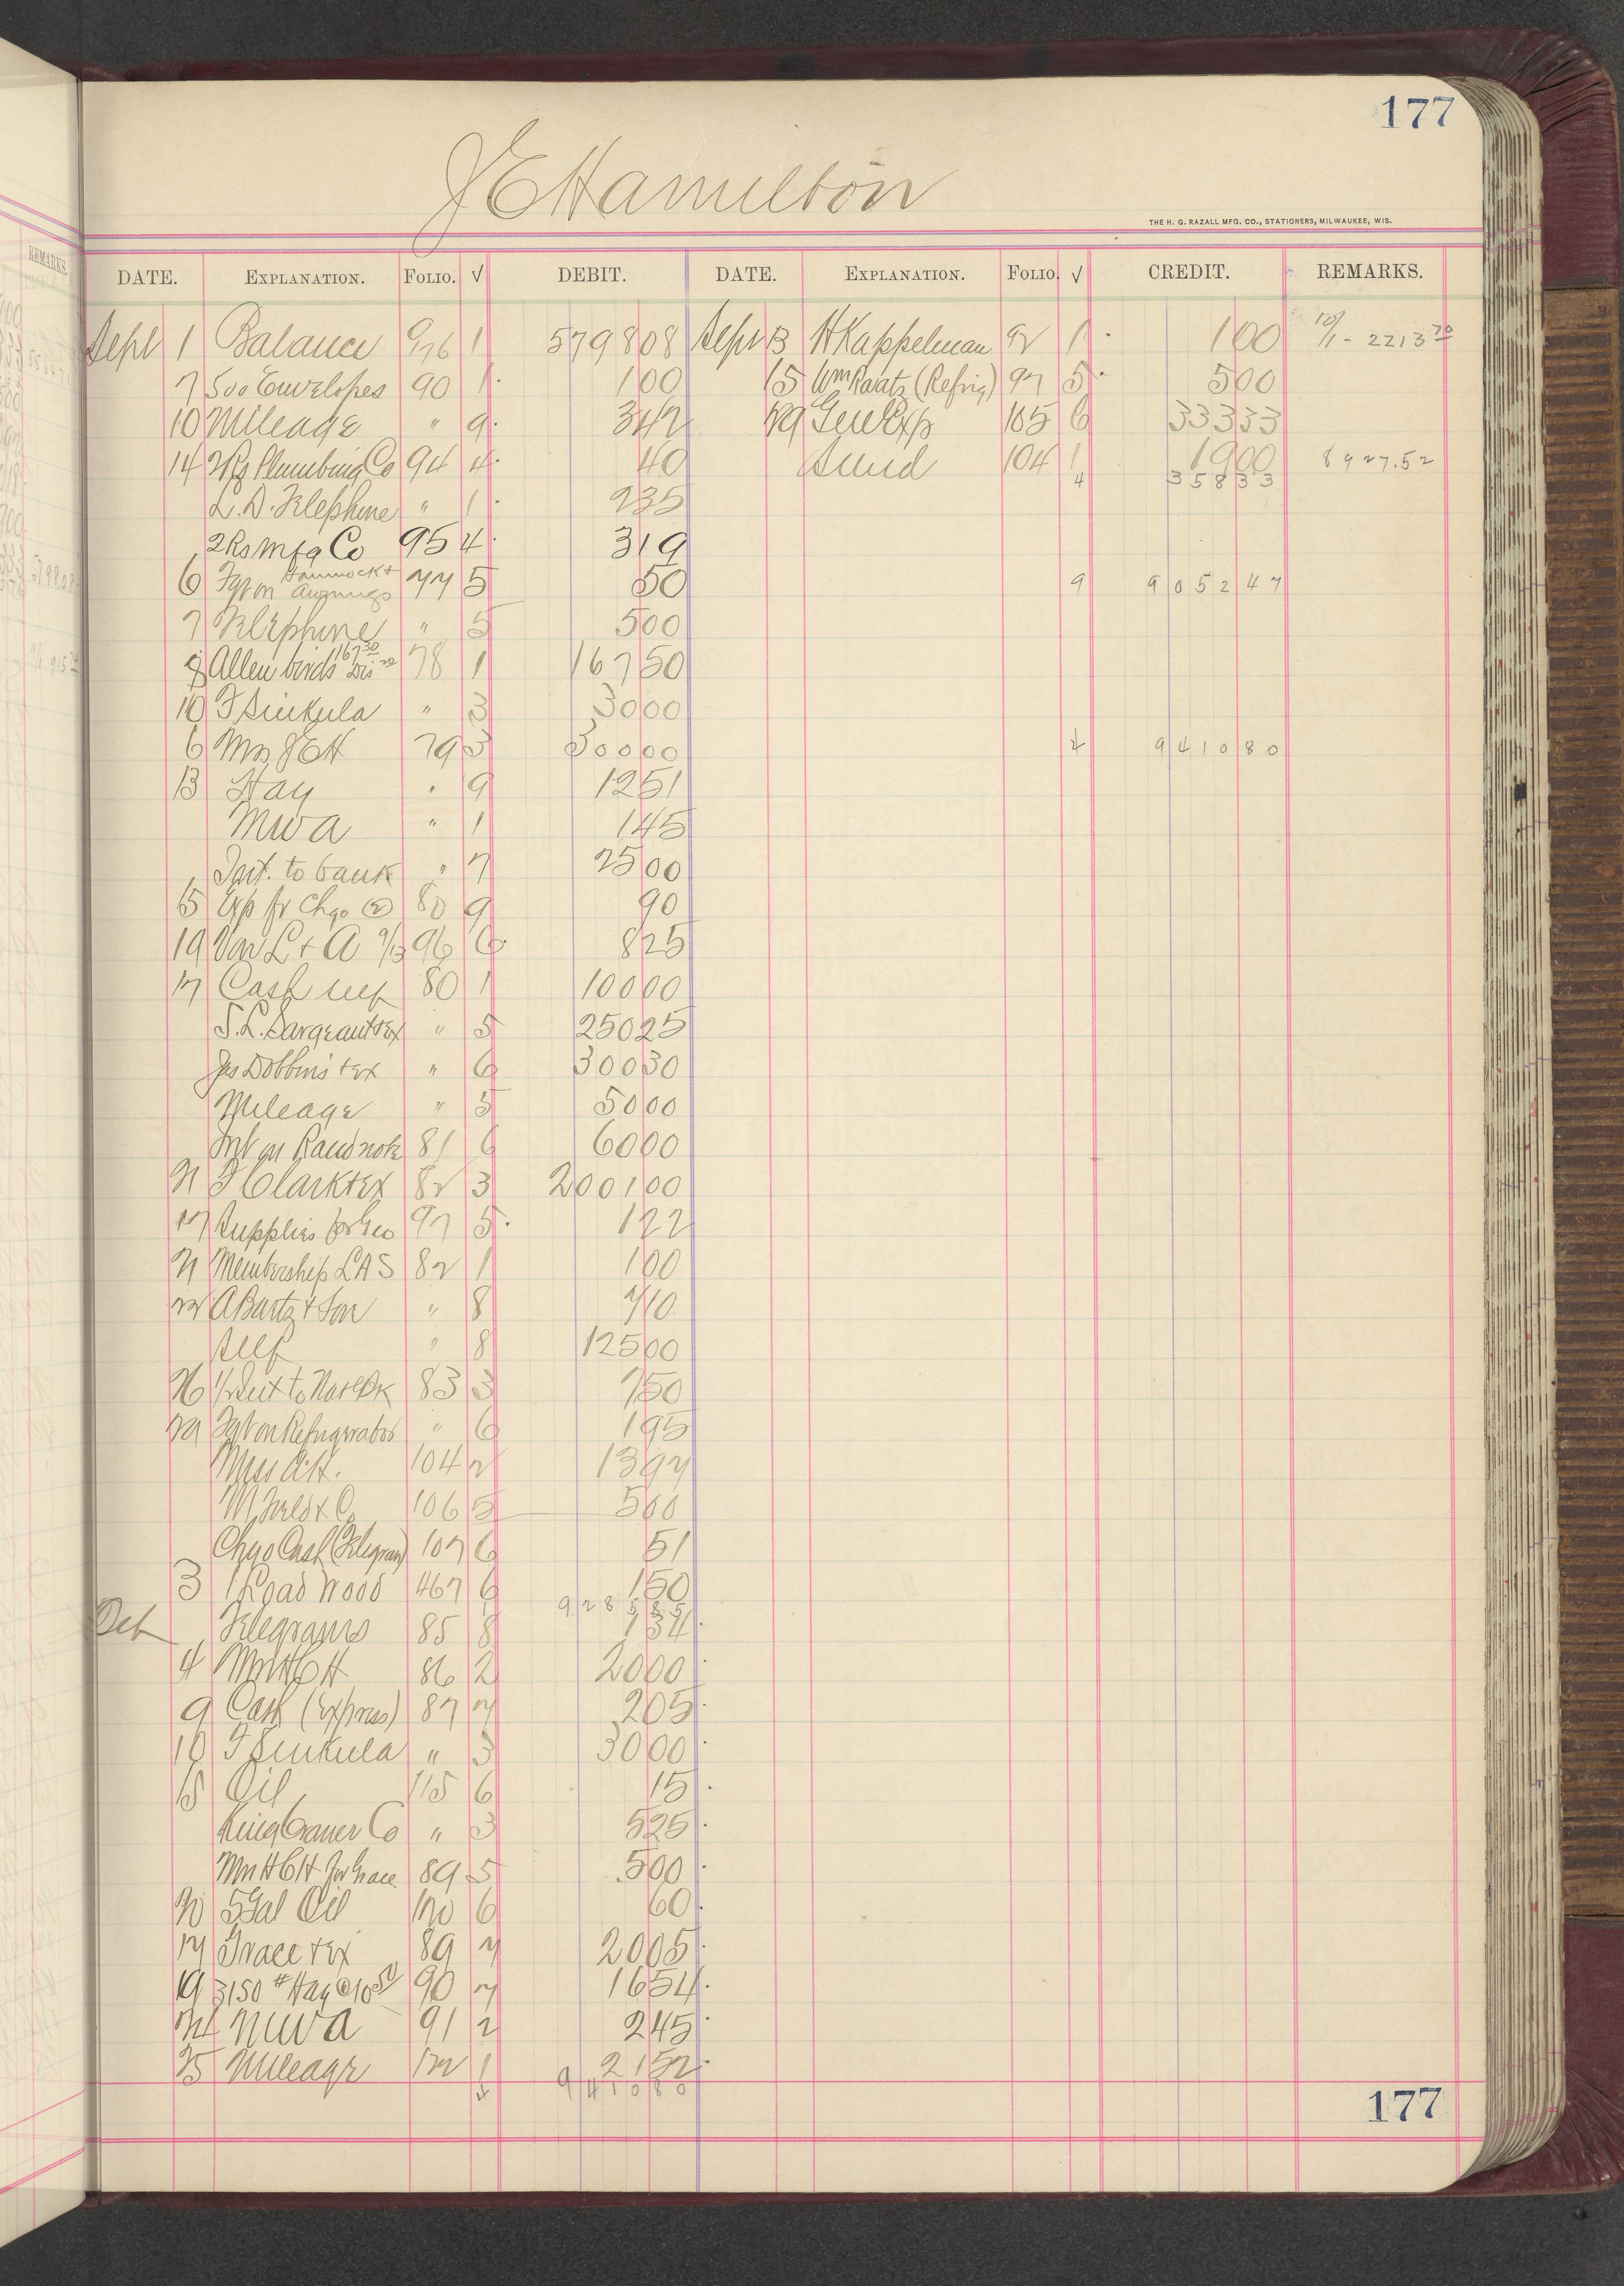 177
J E Hamilton
THE H. G. RAZALL MFG. CO., STATIONERS, MILWAUKEE, WIS.
DATE. EXPLANATION. FOLIO. √ DEBIT. DATE. EXPLANATION. FOLIO. √ CREDIT. REMARKS.
Sept 1 Balance 976 1 579808 Sept 13 H Kappelman 92 1 100 10/1 - 2213 70
7 500 Envelopes 90 1 100 15 Wm Raatz (Refrig) 97 5 500
10 Mileage " 9 342 29 Gen Exp 105 6 33333
14 2 Rs Plumbing Co 94 4 40 Sund 104 1 1900 8927.52
4 35833
L. D. Telephone " 1 235
2 Rs Mfg Co 95 4 319
6 Frt on Hammock + Awnings 77 5 50 9 905247
7 Telephone " 5 500
8 Allen birds 167 50 78 1 16750
10 F Sinkula " 3 3000
6 Mrs J E H 79 3 30000 2 941080
13 Hay " 9 1251
M W A " 1 145
" 7 2500
15 Exp fr Chgo (2) 80 9 90
19 L + A 9/13 96 6 825
17 Cash self 80 1 10000
S. L. Sargeant + ex " 5 25025
Jas Dobbins + ex " 6 30030
Mileage " 5 5000
Int on Rand note 81 6 6000
21 F Clark + ex 82 3 200100
17 Supplies for Geo 97 5 122
21 Membership L A S 82 1 100
22 A Bartz + Son " 8 710
Self " 8 12500
26 83 3 750
29 Frt on Refrigerator " 6 195
104 2 1397
M Field + Co 106 5 500
Chgo Cash (Telegram) 107 6 51
3 1 Load Wood 467 6 150
928585
Oct Telegrams 85 8 134
4 Mrs H C H 86 2 2000
9 Cash (Express) 87 7 205
10 F Sinkula " 3 3000
15 Oil 115 6 15
King Craner Co " 3 525
Mrs H C H for Grace 89 5 500
20 5 Gal Oil 120 6 60
17 Grace + ex 89 7 2005
19 3150 # Hay @ 10 50 90 7 1654
24 M W A 91 2 245
25 Mileage 122 1 2152
2 941080
177